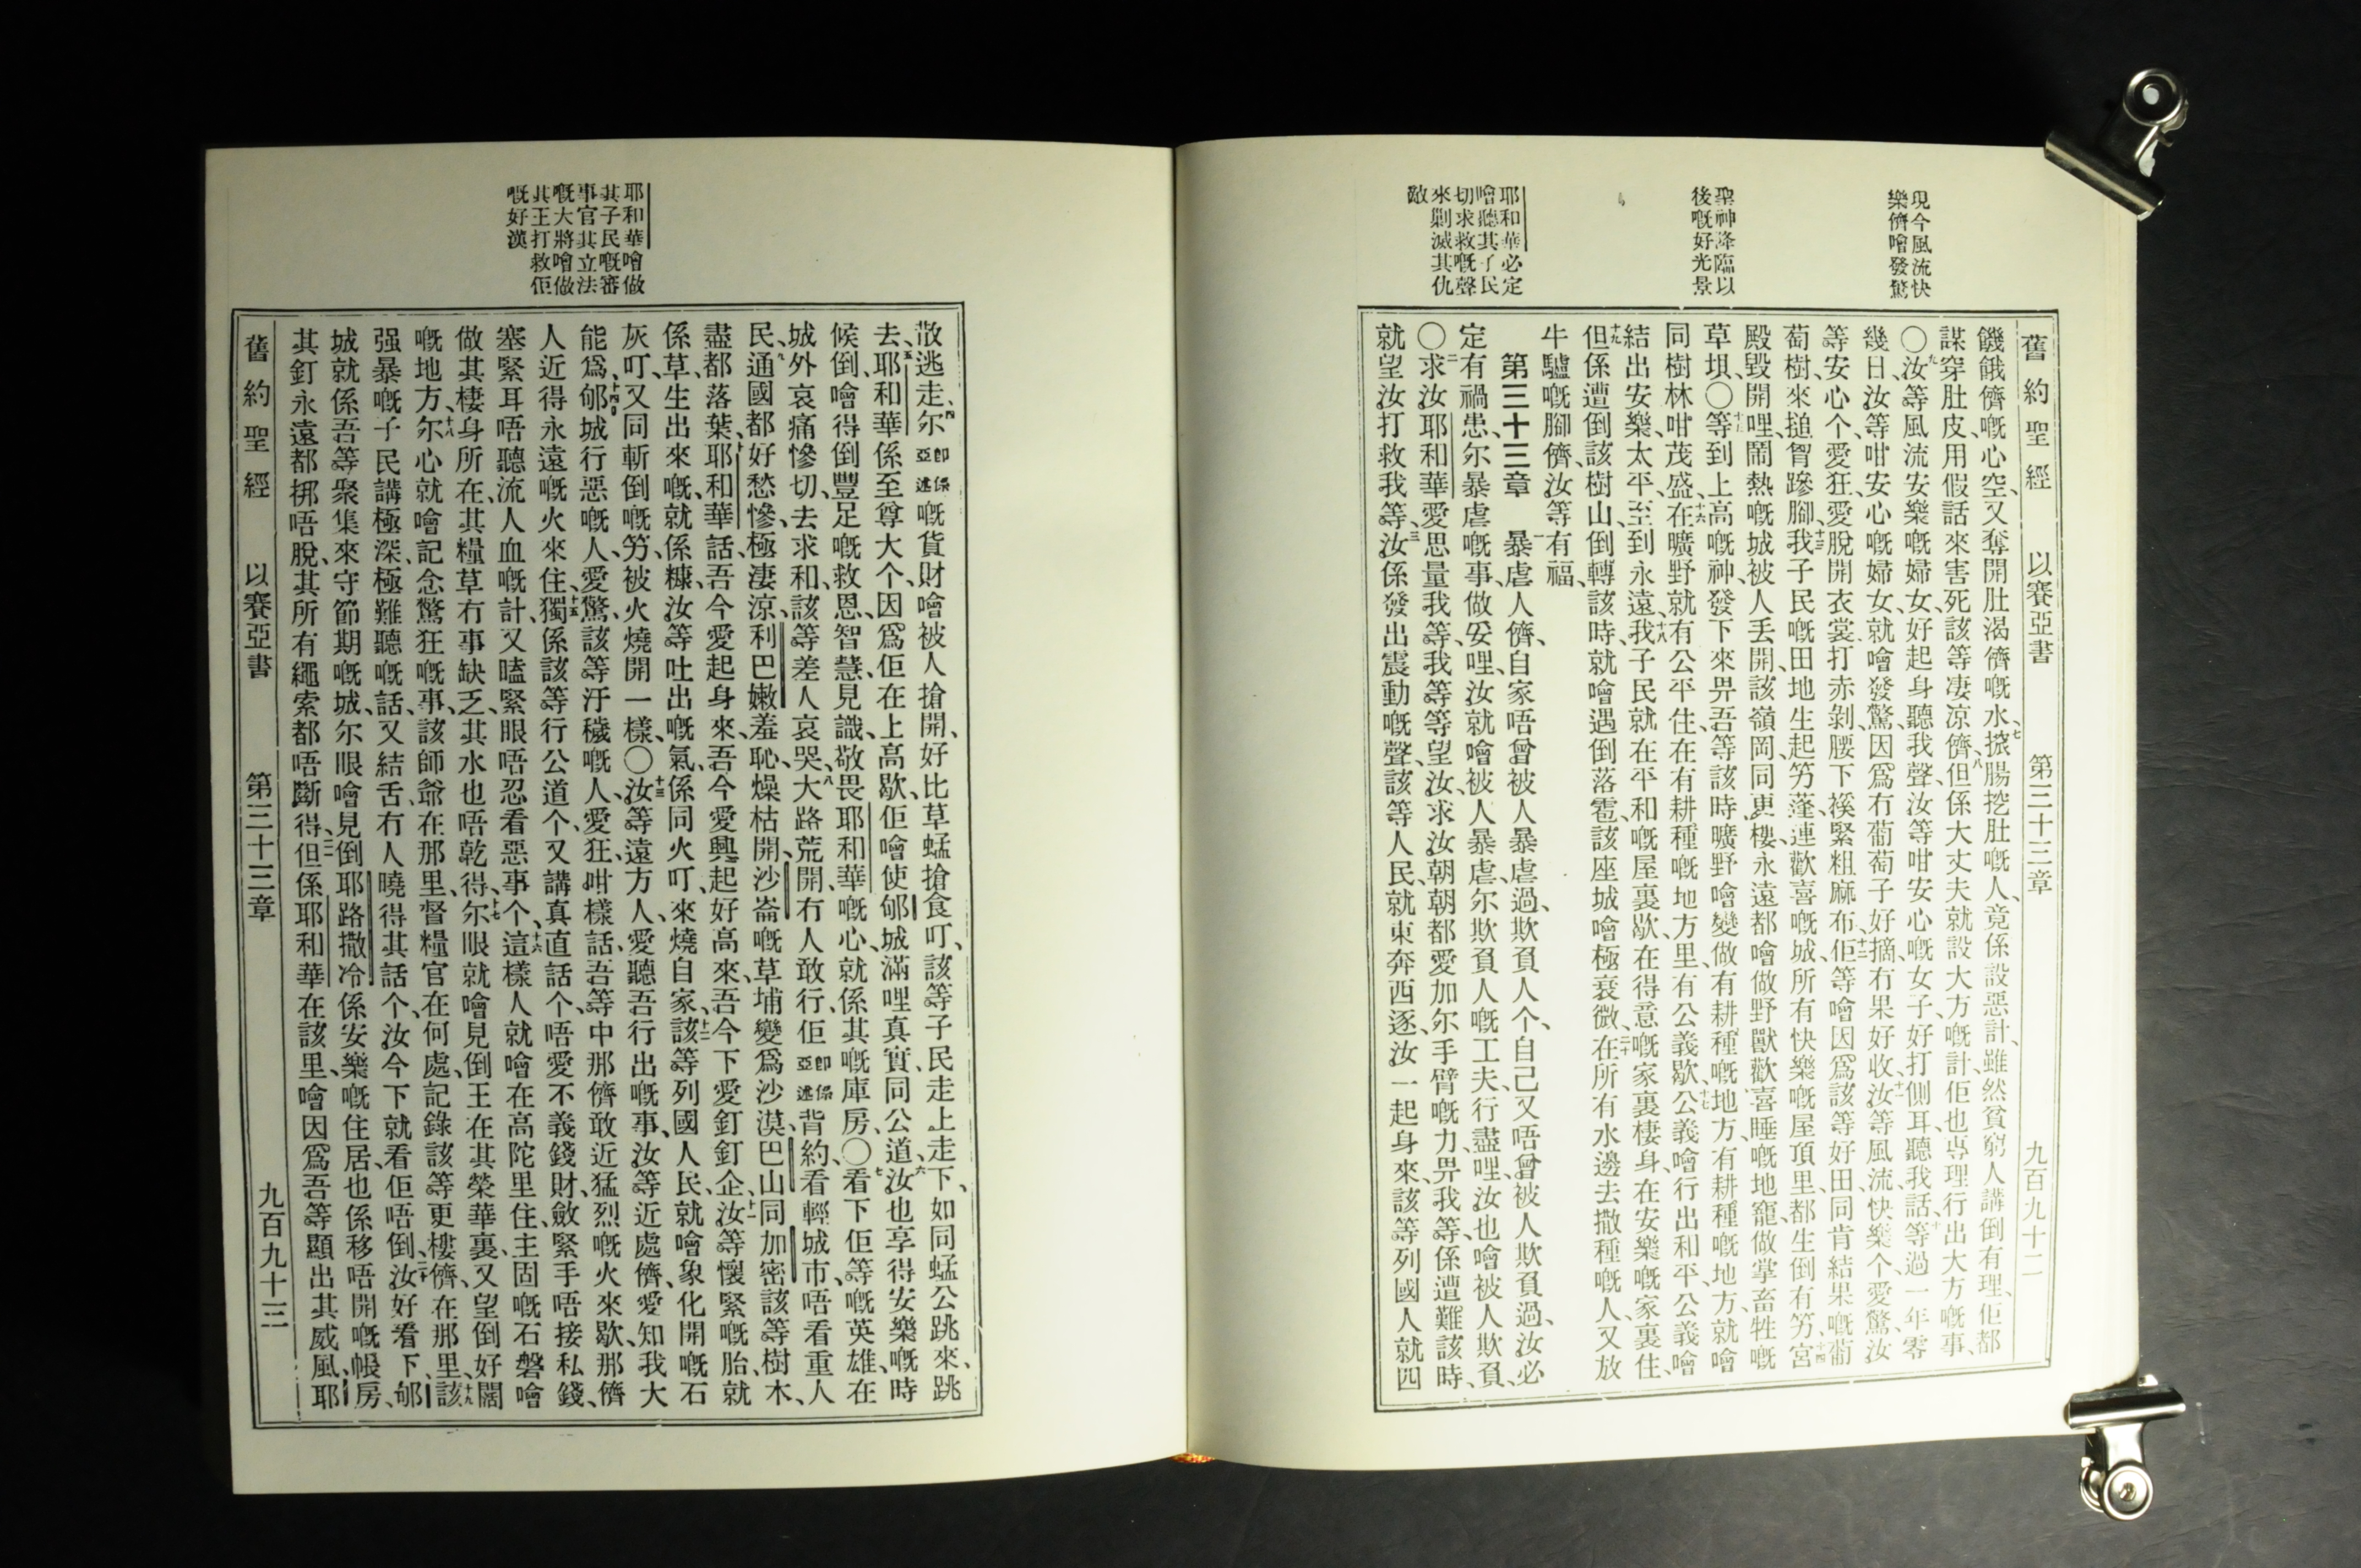 現今風流快
樂儕噲發驚
聖神降臨以
後嘅好光景
耶和華必定
噲聽其子民
切求救嘅聲
來剿滅其仇
敵
舊約聖經 以賽亞書 第三十三章 九百九十二
饑餓儕嘅心空、又奪開肚渴儕嘅水、七㨘腸挖肚嘅人、竟係設惡計、雖然貧窮人講倒有理、佢都
謀穿肚皮、用假話來害死該等凄凉儕、八但係大丈夫就設大方嘅計、佢也專理行出大方嘅事、
〇九汝等風流安樂嘅婦女、好起身聽我聲、汝等咁安心嘅女子、好打側耳聽我話、十等過一年零
幾日、汝等咁安心嘅婦女、就噲發驚、因爲冇葡萄子好摘、冇果好收、十一汝等風流快樂个、愛驚、汝
等安心个、愛狂、愛脫開衣裳、打赤剝、腰下䙎緊粗麻布、十二佢等噲因爲該等好田、同肯結果嘅葡
萄樹、來搥胷蹘腳、十三我子民嘅田地、生起竻蓬、連歡喜嘅城、所有快樂嘅屋頂里、都生倒有竻、十四宮
殿毀開哩、鬧熱嘅城、被人丟開、該嶺岡同更樓、永遠都噲做野獸歡喜睡嘅地竉、做掌畜牲嘅
草垻、〇十五等到上高嘅神、發下來畀吾等、該時曠野噲變做有耕種嘅地方、有耕種嘅地方、就噲
同樹林咁茂盛、十六在曠野就有公平住、在有耕種嘅地方里、有公義歇、十七公義噲行出和平、公義噲
結出安樂太平、至到永遠、十八我子民就在平和嘅屋裏歇、在得意嘅家裏棲身、在安樂嘅家裏住、
十九但係遭倒該樹山、倒轉該時、就噲遇倒落雹、該座城噲極衰微、二十在所有水邊去撒種嘅人、又放
牛驢嘅腳儕、汝等有福、
第三十三章 一暴虐人儕、自家唔曾被人暴虐過、欺負人个、自己又唔曾被人欺負過、汝必
定有禍患、尔暴虐嘅事、做妥哩、汝就噲被人暴虐、尔欺負人嘅工夫、行盡哩、汝也噲被人欺負、
〇二求汝耶和華愛思量我等、我等等望汝、求汝朝朝都愛加尔手臂嘅力、畀我等、係遭難該時、
就望汝打救我等、三汝係發出震動嘅聲、該等人民、就東奔西逐、汝一起身來、該等列國人就四
耶和華噲做
其子民嘅審
事官其立法
嘅大將噲做
其王打救佢
嘅好漢
散逃走、四尔卽係亞述嘅貨財噲被人搶開、好比草蜢搶食叮、該等子民走上走下、如同蜢公跳來、跳
去、五耶和華係至尊大个、因爲佢在上高歇、佢噲使郇城滿哩眞實、同公道、六汝也享得安樂嘅時
候倒、噲得倒豐足嘅救恩、智慧、見識、敬畏耶和華嘅心、就係其嘅庫房、〇七看下佢等嘅英雄、在
城外哀痛慘切、去求和、該等差人哀哭、八大路荒開、冇人敢行、佢卽係亞述背約、看輕城市、唔看重人
民、九通國都好愁慘、極淒涼、利巴嫩羞恥、燥枯開、沙崙嘅草埔變爲沙漠、巴山同加密該等樹木、
盡都落葉、十耶和華話、吾今愛起身來、吾今愛興起好高來、吾今下愛釘釘企、十一汝等懷緊嘅胎、就
係草、生出來嘅、就係糠、汝等吐出嘅氣、係同火叮、來燒自家、十二該等列國人民、就噲象化開嘅石
灰叮、又同斬倒嘅竻、被火燒開一樣、〇十三汝等遠方人、愛聽吾行出嘅事、汝等近處儕、愛知我大
能爲、十四郇城行惡嘅人、愛驚、該等汙穢嘅人、愛狂、咁樣話、吾等中那儕敢近猛烈嘅火來歇、那儕
人近得永遠嘅火來住、十五獨係該等行公道个、又講眞直話个、唔愛不義錢財、斂緊手唔接私錢、
塞緊耳唔聽流人血嘅計、又瞌緊眼唔忍看惡事个、十六這樣人就噲在高陀里住、主固嘅石磐噲
做其棲身所在、其糧草冇事缺乏、其水也唔乾得、十七尔眼就噲見倒王在其榮華裏、又望倒好闊
嘅地方、十八尔心就噲記念驚狂嘅事、該師爺在那里、督糧官在何處、記錄該等更樓儕、在那里、十九該
强暴嘅子民、講極深極難聽嘅話、又結舌冇人曉得其話个、汝今下就看佢唔倒、二十汝好看下、郇
城就係吾等聚集來守節期嘅城、尔眼噲見倒耶路撒冷、係安樂嘅住居、也係移唔開嘅帳房、
其釘永遠都挷唔脫、其所有繩索、都唔斷得、二一但係耶和華在該里、噲因爲吾等顯出其威風、耶
舊約聖經 以賽亞書 第三十三章 九百九十三